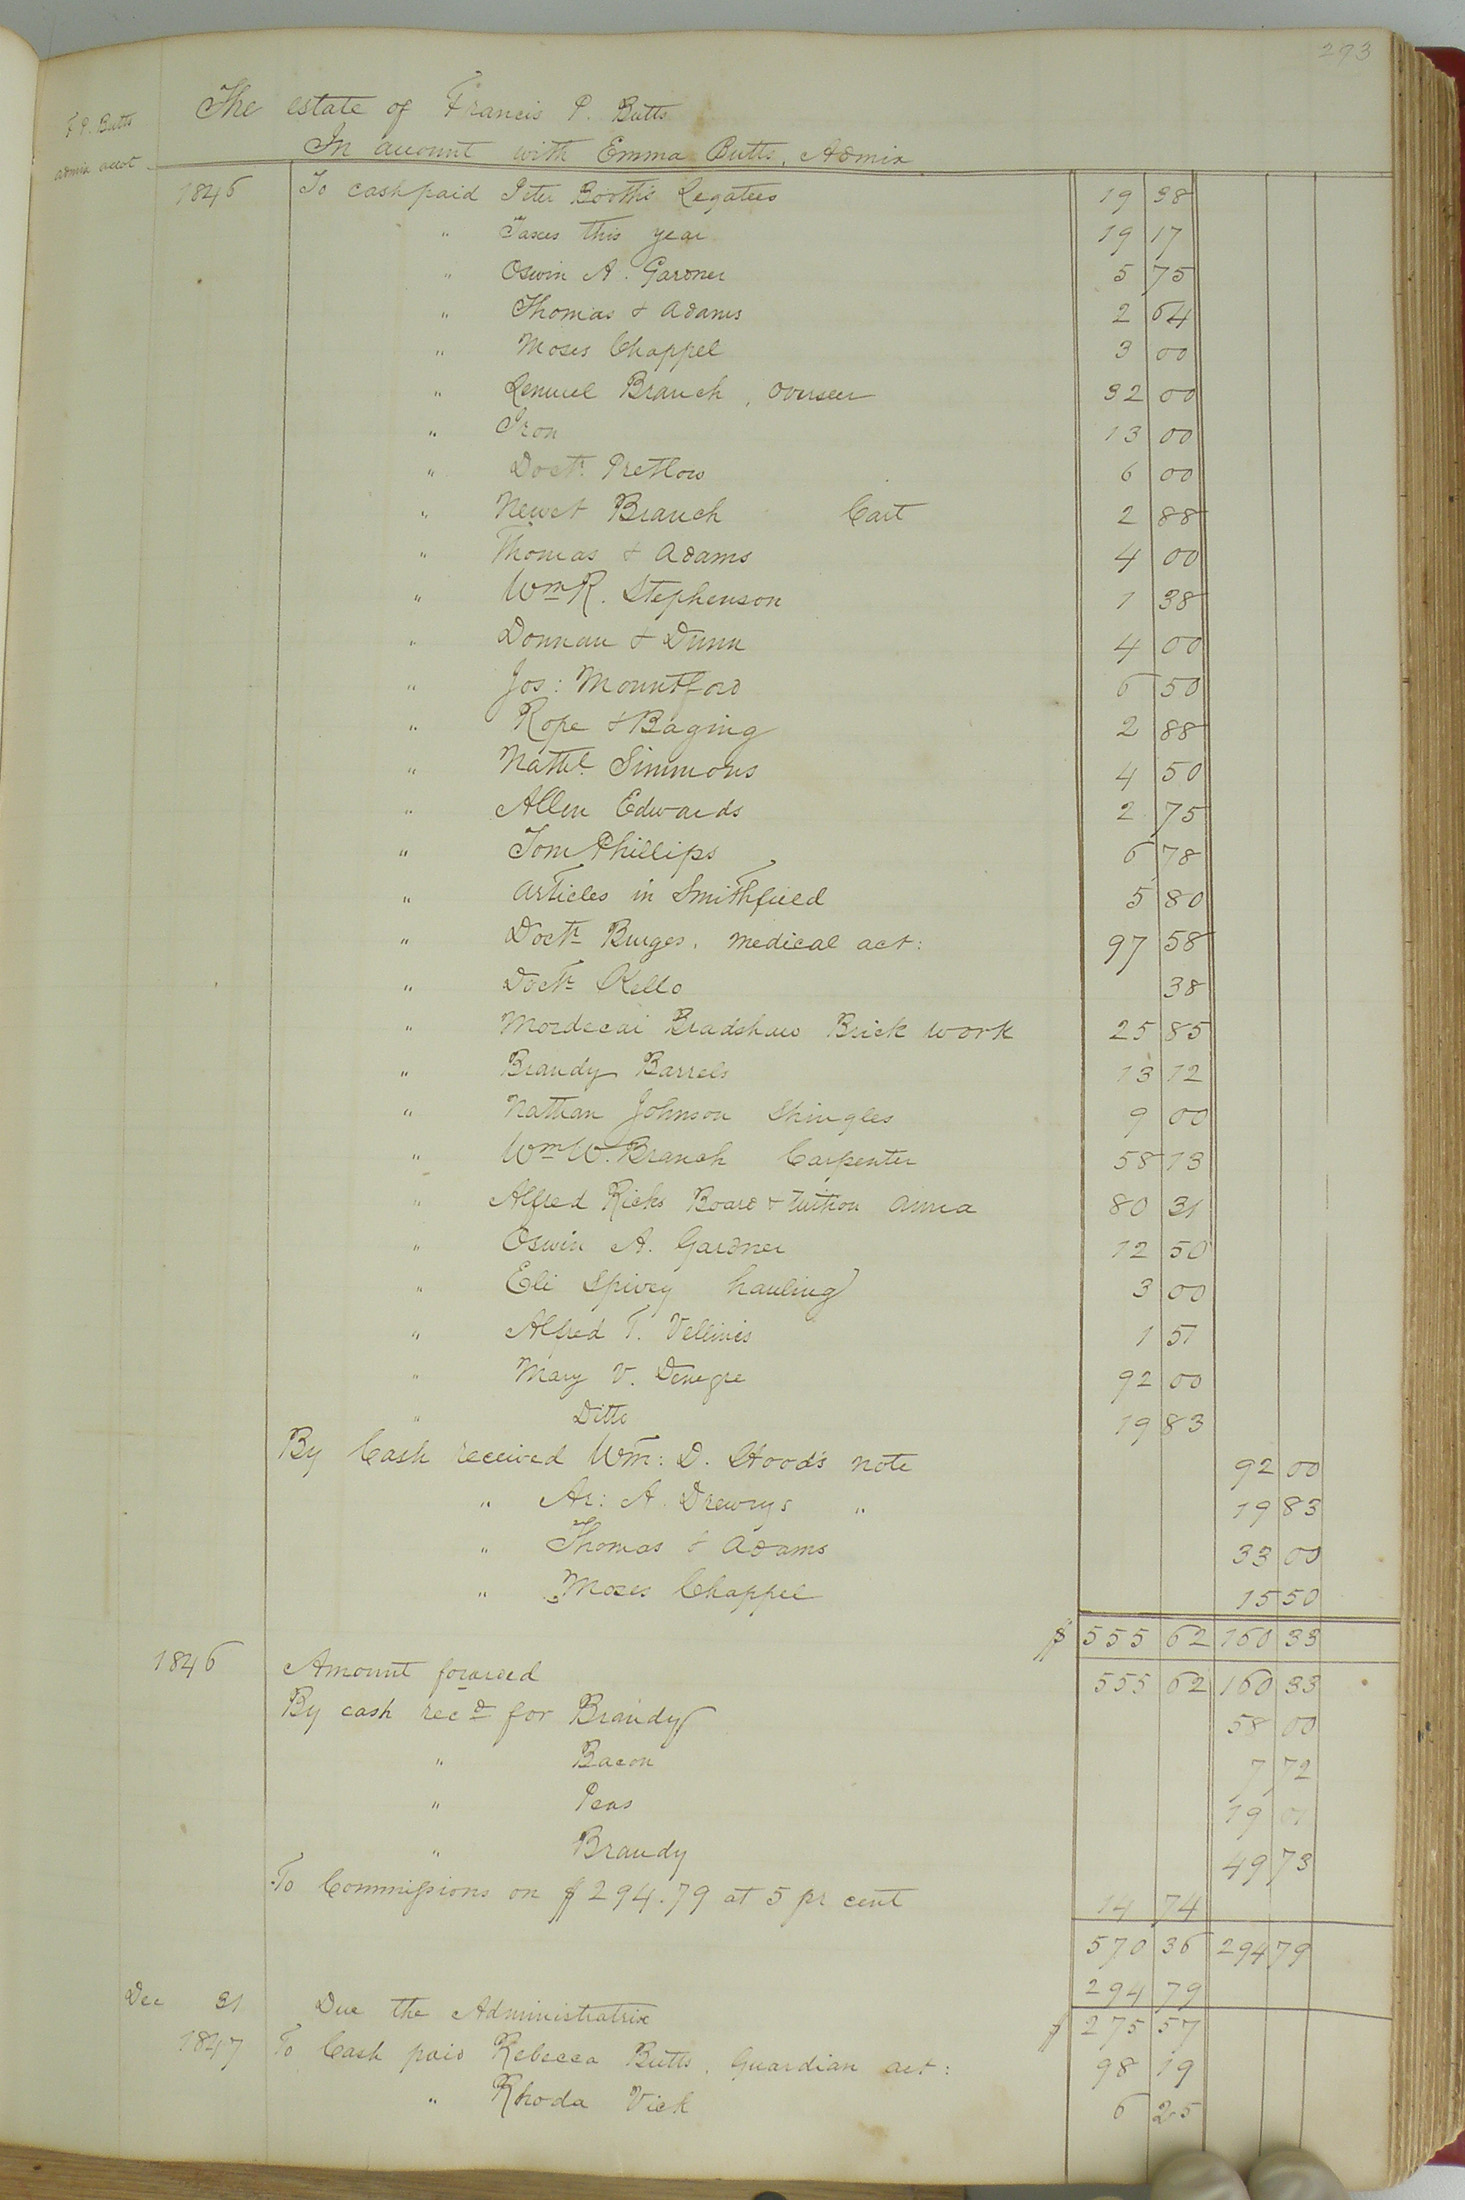 293
F P. Butts
admix acct
The estate of Francis P. Butts
In account with Emma Butts, Admix
1846 To cash paid Peter Booth's Legatees 19 38
" Taxes this year 19 17
" Oswin A. Gardner 5 75
" Thomas & Adams 2 64
" Moses Chappel 3 00
" Lemuel Branch, overseer 32 00
" Iron 13 00
" Doctr. Pretlow 6 00
" Newet Branch Cart 2 88
" Thomas & Adams 4 00
" Wm R. Stephenson 1 38
" Donnan & Dunn 4 00
" Jos: Mountford 6 50
" Rope & Baging 2 88
" Nathl. Simmons 4 50
" Allen Edwards 2 75
" Tom Phillips 6 78
" articles in Smithfield 5 80
" Doctr Burges, medical act: 97 58
" Doctr Kello 38
" Mordecai Bradshaw Brick work 25 85
" Brandy Barrels 13 12
" Nathan Johnson Shingles 9 00
" Wm W. Branch Carpenter 58 13
" Alfred Ricks Board & tuition Anna 80 31
" Oswin A. Gardner 12 50
" Eli Spivey hauling 3 00
" Alfred T. Vellines 1 51
" Mary V. Denegre 92 00
" Ditto 19 83
By Cash received Wm: D. Hood's note 92 00
" Ar: A. Drewrys " 19 83
" Thomas & Adams 33 00
" Moses Chappel 15 50
$ 555 62 160 33
1846 Amount forward 555 62 160 33
By cash recd for Brandy 58 00
" Bacon 7 72
" Peas 19 01
" Brandy 49 73
To Commissions on $294.79 at 5 pr cent 14 74
570 36 294 79
294 79
Dec 31 Due the Administratrix $ 275 57
1847 To Cash paid Rebecca Butts, Guardian act: 98 19
" Rhoda Vick 6 25